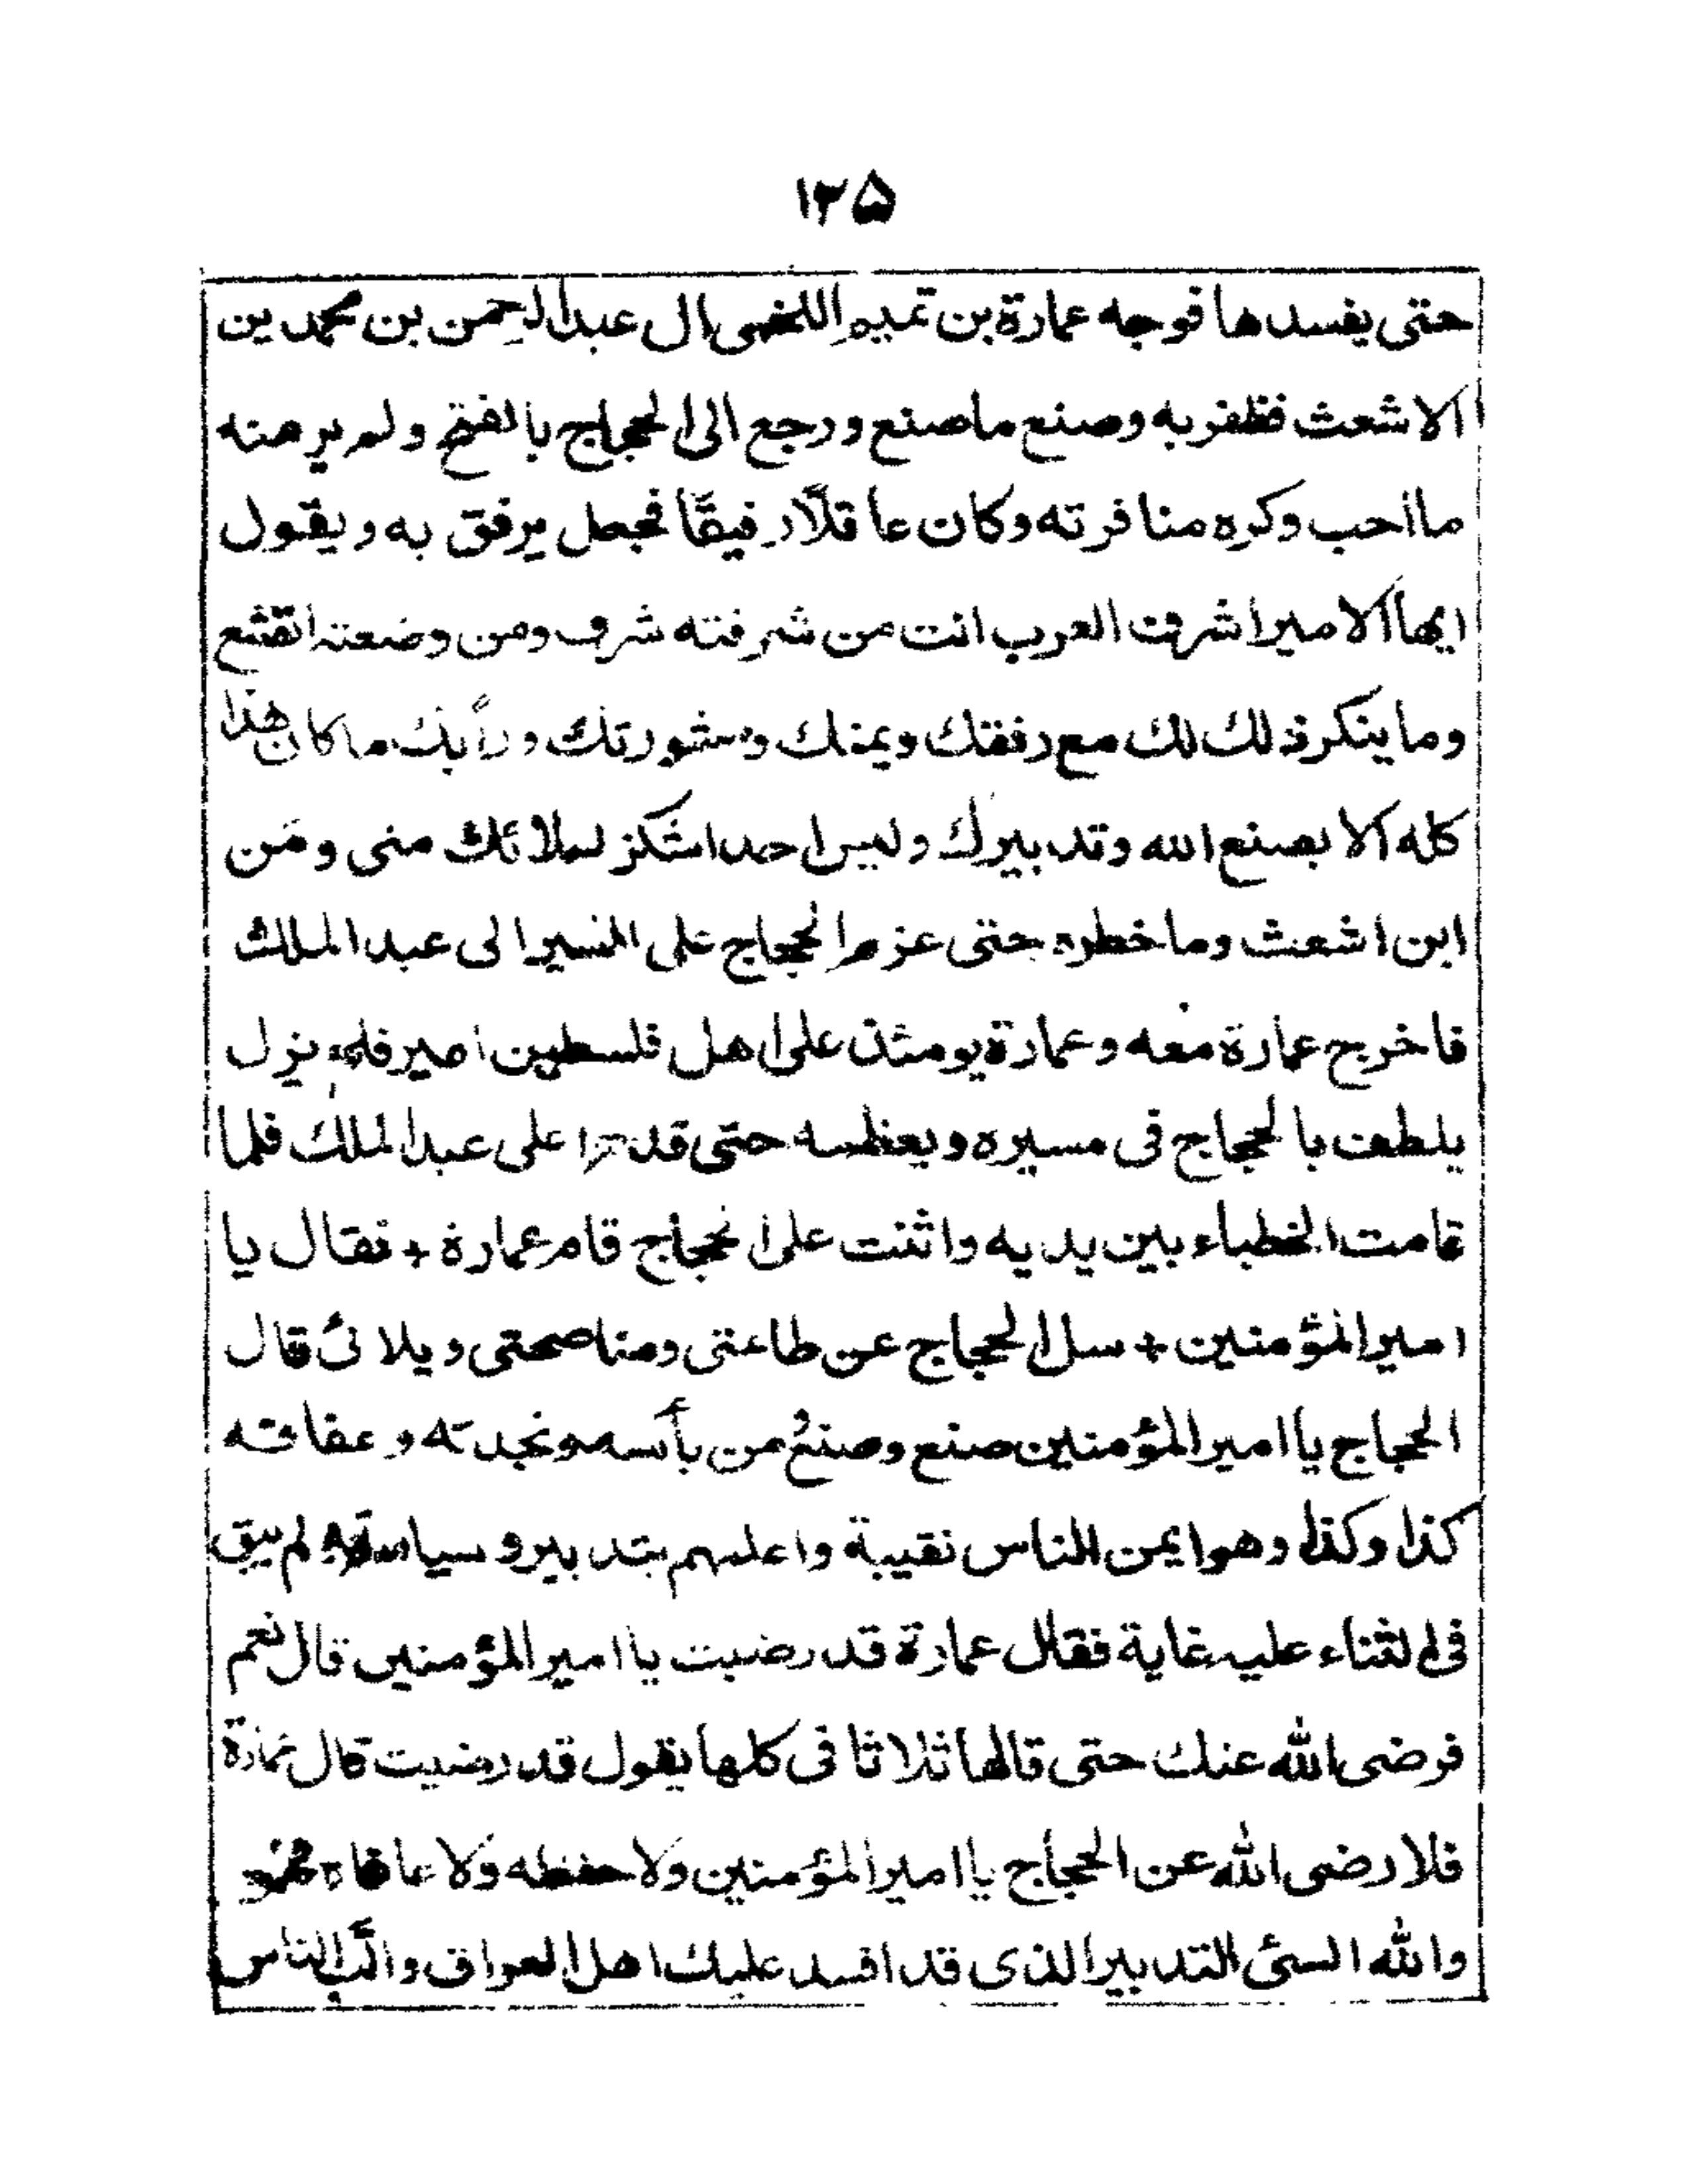 ۱۳۵
حتى يفسدها فوجه عمارة بن تميم اللخمى ال عبد الرحمن بن محمد بن
الاشعث فظفر به وصنع ما صنع ورجع الى الحجاج بالفتح ولم ير منه
ما احب وكره منافرته وكان عاقلًا رفيقًا فجعل يرفق به ويقول
ايها الامير اشرف العرب انت من شرفته شرف ومن وضعته اتضع
وما ينكر ذلك لك مع رفقك ويمنك ومشورتك ورأيك ما كان هذا
كله الا بصنع الله وتدبيرك وليس احد اشكر لبلائك منى ومن
ابن اشعث وما خطره حتى عزم الحجاج على المسير الى عبد الملك
فاخرج عمارة معه وعمارة يومئذ على اهل فلسطين امير فلم يزل
يلطف بالحجاج فى مسيره ويعظمه حتى قدموا على عبد الملك فلما
قامت الخطباء بين يديه واثنت على الحجاج قام عمارة + فقال يا
امير المؤمنين + سل الحجاج عن طاعتى ومناصحتى وبلائى قال
الحجاج يا امير المؤمنين صنع وصنع من بأسه ونجدته وعفافه
كذا وكذا وهو ايمن الناس نقيبة واعلمهم بتدبير وسياسة ولم يبق
فى الثناء عليه غاية فقال عمارة قد رضيت يا امير المؤمنين قال نعم
فرضى الله عنك حتى قالها ثلاثا فى كلها يقول قد رضيت قال عمارة
فلا رضى الله عن الحجاج يا امير المؤمنين ولا حفظه ولا عافاه فهو
والله السئ التدبير الذى قد افسد عليك اهل العراق والّب الناس